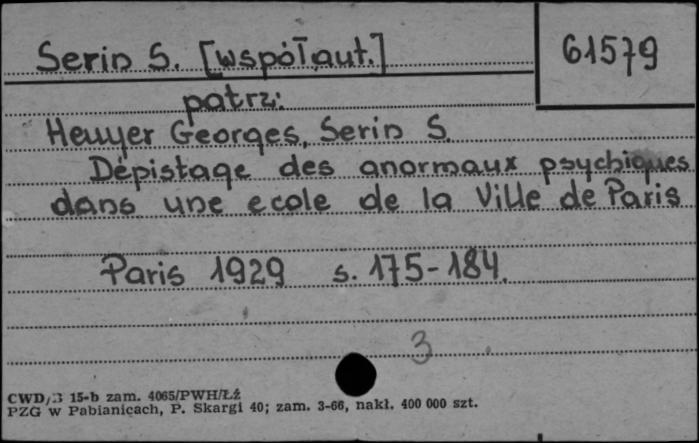 Serin S. [współaut.]
61579
patrz:
Heuyer Georges, Serin S.
Dépistage des anormaux psychiques
dans une ecole de la Ville de Paris
Paris 1929 s. 175-184.
3
CWD/3 15-b zam. 4065/PWH/Łź
PZG w Pabianicach, P. Skargi 40; zam. 3-66, nakł. 400 000 szt.